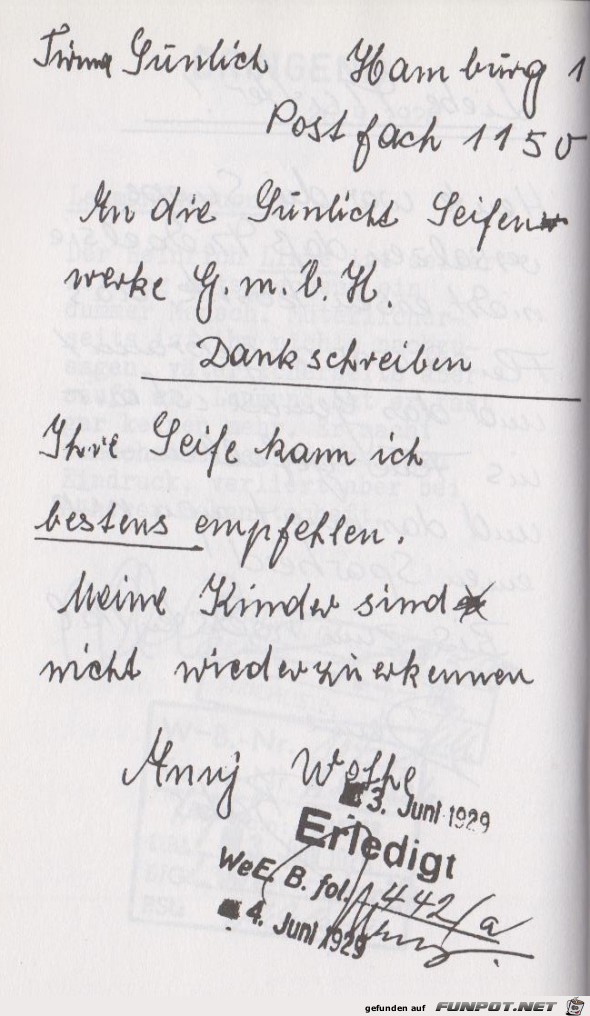 Firma Sunlich Hamburg 1
Postfach 1150
An die Sunlicht Seifen
werke G.m.b.H.
Dankschreiben
Ihre Seife kann ich
bestens empfehlen.
Meine Kinder sind
nicht wiederzuerkennen
Anny
3. Juni 1929
Erledigt
WeE. B. fol. 442/a
4. Juni 1929
gefunden auf FUNPOT.NET